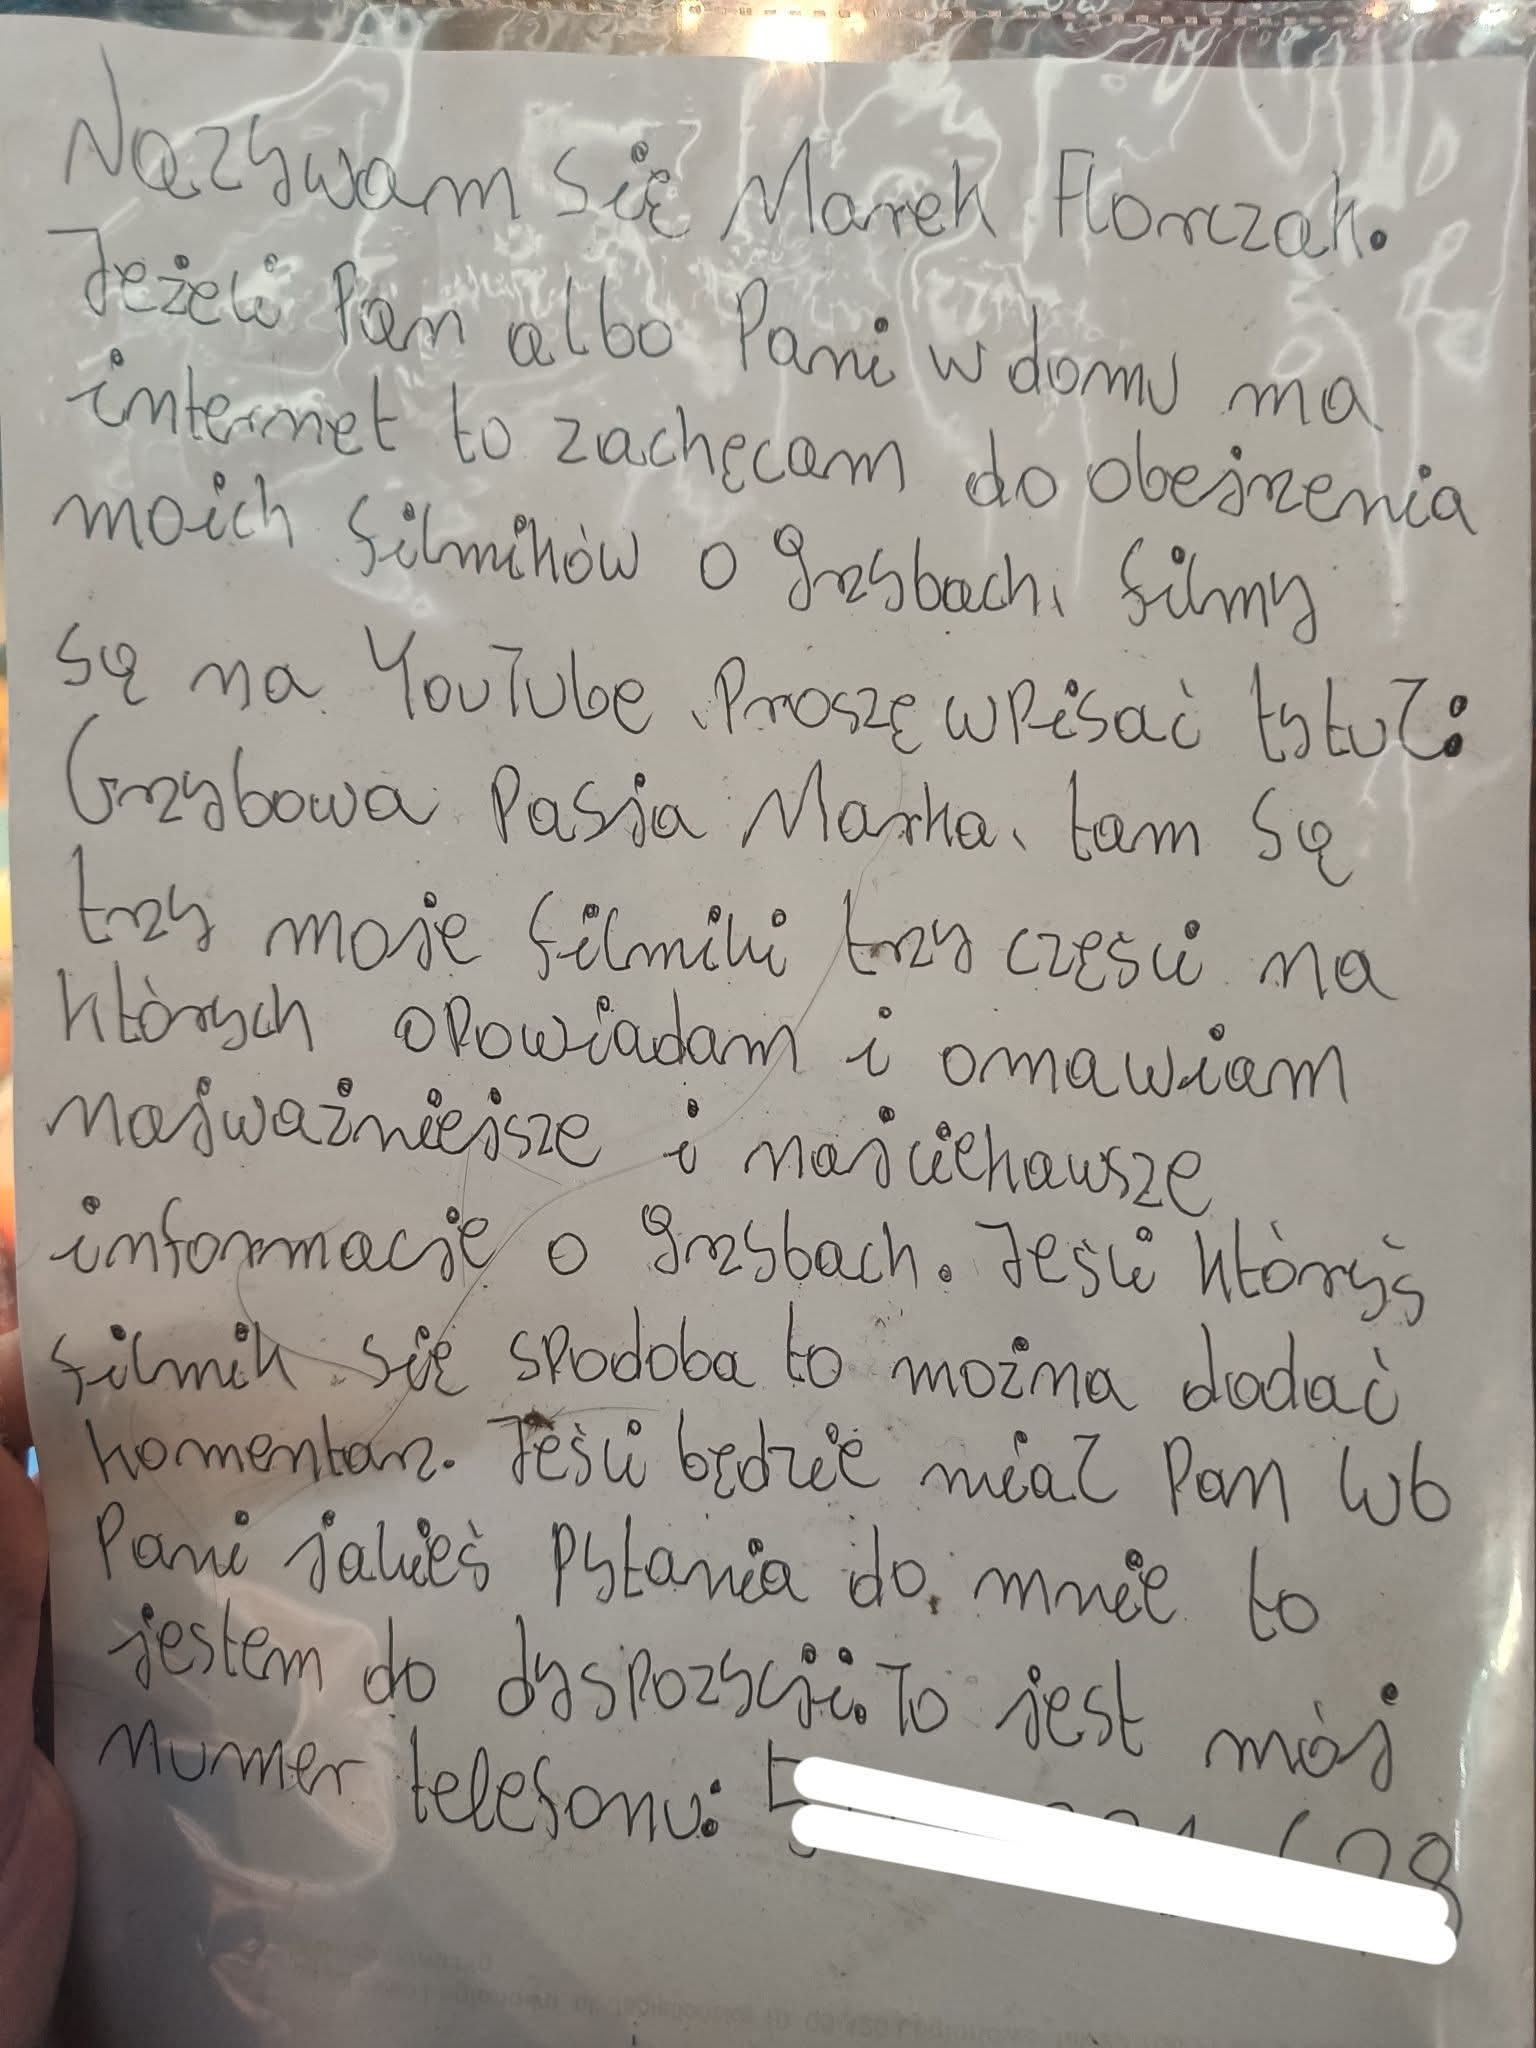 Nazywam się Marek Florczak.
Jeżeli Pan albo Pani w domu ma
internet to zachęcam do obejrzenia
moich filmików o grzybach. filmy
są na YouTube. Proszę wpisać tytuł:
Grzybowa Pasja Marka. tam są
trzy moje filmiki trzy części na
których opowiadam i omawiam
najważniejsze i najciekawsze
informacje o grzybach. Jeśli któryś
filmik się spodoba to można dodać
komentarz. Jeśli będzie miał Pan lub
Pani jakieś pytania do mnie to
jestem do dyspozycji. To jest mój
numer telefonu: